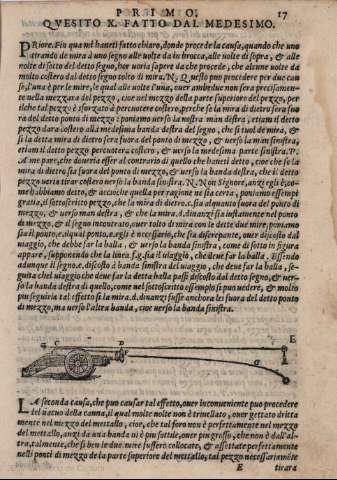 PRIMO. 17
QVESITO X. FATTO DAL MEDESIMO.
PRiore. Fin qua mi haueti fatto chiaro, donde procede la causa, quando che uno
tirando de mira a uno segno alle uolte da in brocca, alle uolte di sopra, & alle
uolte di sotto del detto segno, hor uoria sapere da che procede, che alcune uolte da
molto costero dal detto segno tolto di mira. N. Questo puo procedere per due cau
se, l'una è per le mire, le qual alle uolte l'una, ouer ambedue non sera precisamen-
te nella mezzaria del pezzo, cioe nel mezzo della parte superiore del pezzo, per
ilche tal pezzo è sforzato à percuotere costero, perche se la mira di dietro sera fuo
ra del detto ponto di mezzo: poniamo uerso la nostra man destra, etiam il detto
pezzo dara costero alla medesima banda destra del segno, che si tuol de mira, &
si la detta mira di dietro sera fuora del ponto di mezzo, & uerso la man sinistra,
etiam il detto pezzo percuotera costero, & uerso la medesima parte sinistra. P.
A me pare, che doueria esser al contrario di quello che haueti detto, cioe che se la
mira di dietro sia fuora del ponto di mezzo, & uerso la banda destra, che il detto
pezzo ueria tirar costero uerso la banda sinistra. N. Non Signore, anzi egli è co-
me habbiamo detto, & accioche quella particina ue sia certa, poniamo essempi
gratia, il sottoscritto pezzo, che la mira di dietro .c. sia alquanto fuora del ponto di
mezzo, & uerso man destra, & che la mira .d. dinanzi sia iustamente nel ponto
di mezzo, & il segno incontrato, ouer tolto di mira con le dette due mire, poniamo
sia il ponto .e. il qual ponto .e. egli è necessario, che sia discrepante, ouer discosto dal
uiaggio, che debbe far la balla, & uerso la banda sinistra, come di sotto in figura
appare, supponendo che la linea .f.g. sia il uiaggio, che deue far la balla. Essendo
adunque il segno .e. discosto à banda sinistra del uiaggio, che deue far la balla, se-
guita che l uiaggio che deue far la detta balla passi discosto dal detto segno, & uer-
so la banda destra di quello, come nel sottoscritto essempio si puo uedere, & molto
piu seguiria tal effetto si la mira .d. dinanzi fusse anchora lei fuora del detto ponto
di mezzo, ma uerso l'altra banda, cioe uerso la banda sinistra.
C D E
G
LA seconda causa, che puo causar tal effetto, ouer inconueniente puo procedere
dal uacuo della canna, il qual molte uolte non è triuellato, ouer gettato dritta
mente nel mezzo del mettallo, cioe, che tal foro non è perfettamente nel mezzo
del mettallo, anzi da una banda ui è piu sottile, ouer piu grosso, che non è dall'al-
tra, talmente, che si ben le due mire fussero collocate, & assettate perfettamente
nelli ponti di mezzo de la parte superiore del mettallo, tal pezzo necessariamẽte
E tirara